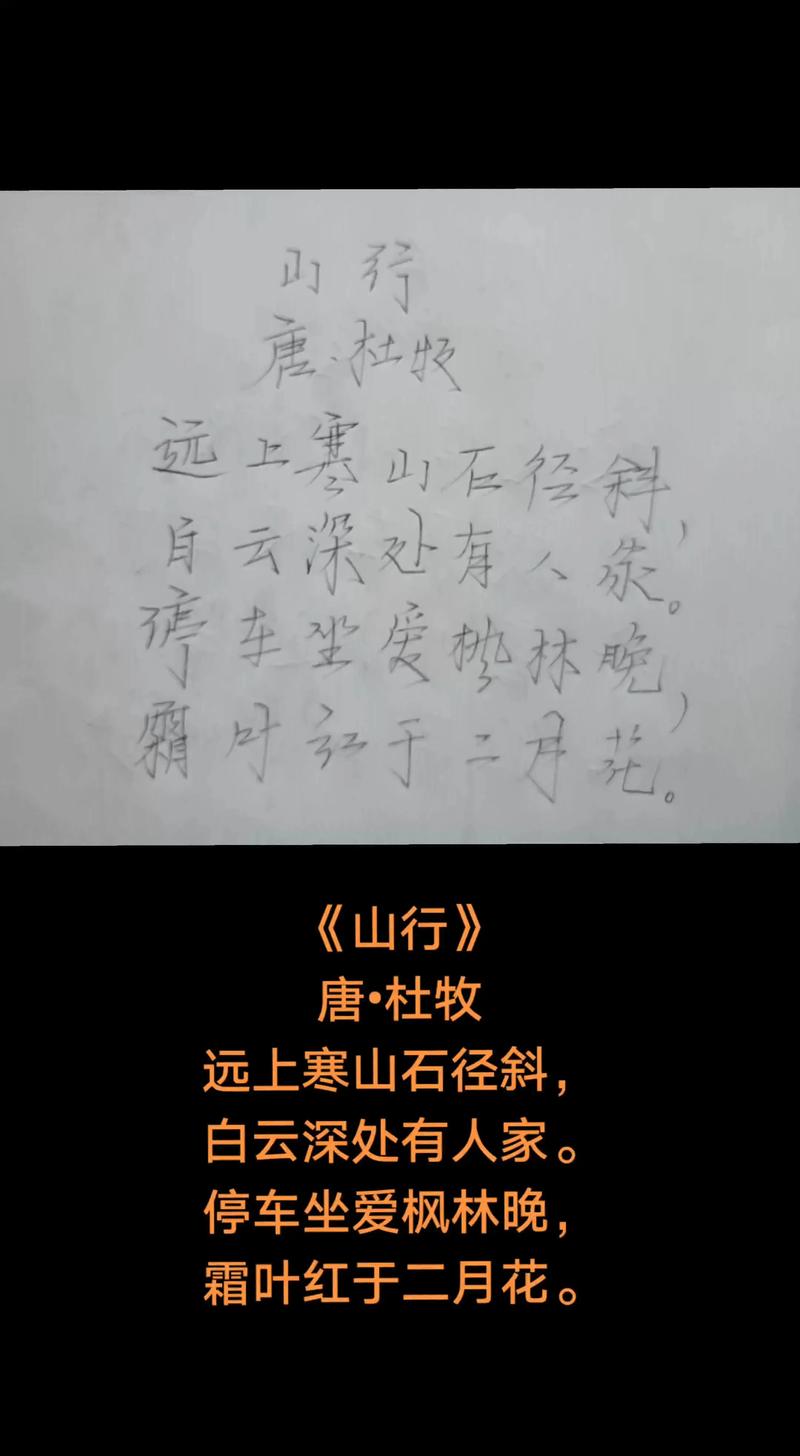 山行
唐·杜牧
远上寒山石径斜，
白云深处有人家。
停车坐爱枫林晚，
霜叶红于二月花。
《山行》
唐•杜牧
远上寒山石径斜，
白云深处有人家。
停车坐爱枫林晚，
霜叶红于二月花。